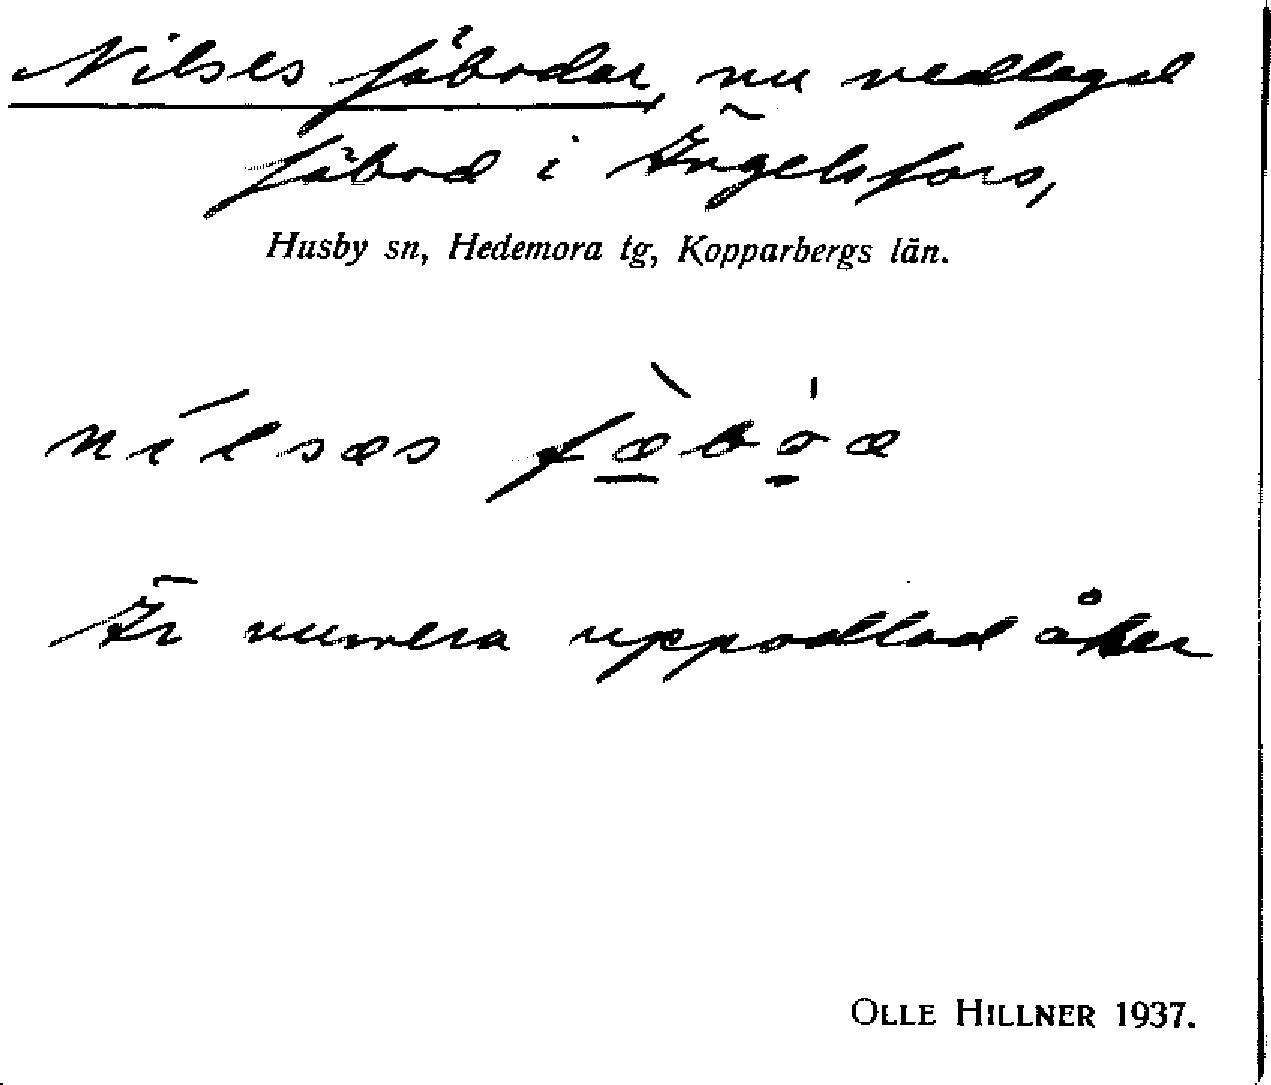 Nilses fäbodar, nu nedlagd
fäbod i Ängelsfors,
Husby sn, Hedemora tg, Kopparbergs län.
nílsæs fæ̱̀bo̱̍æ
Är numera uppodlad åker
OLLE HILLNER 1937.